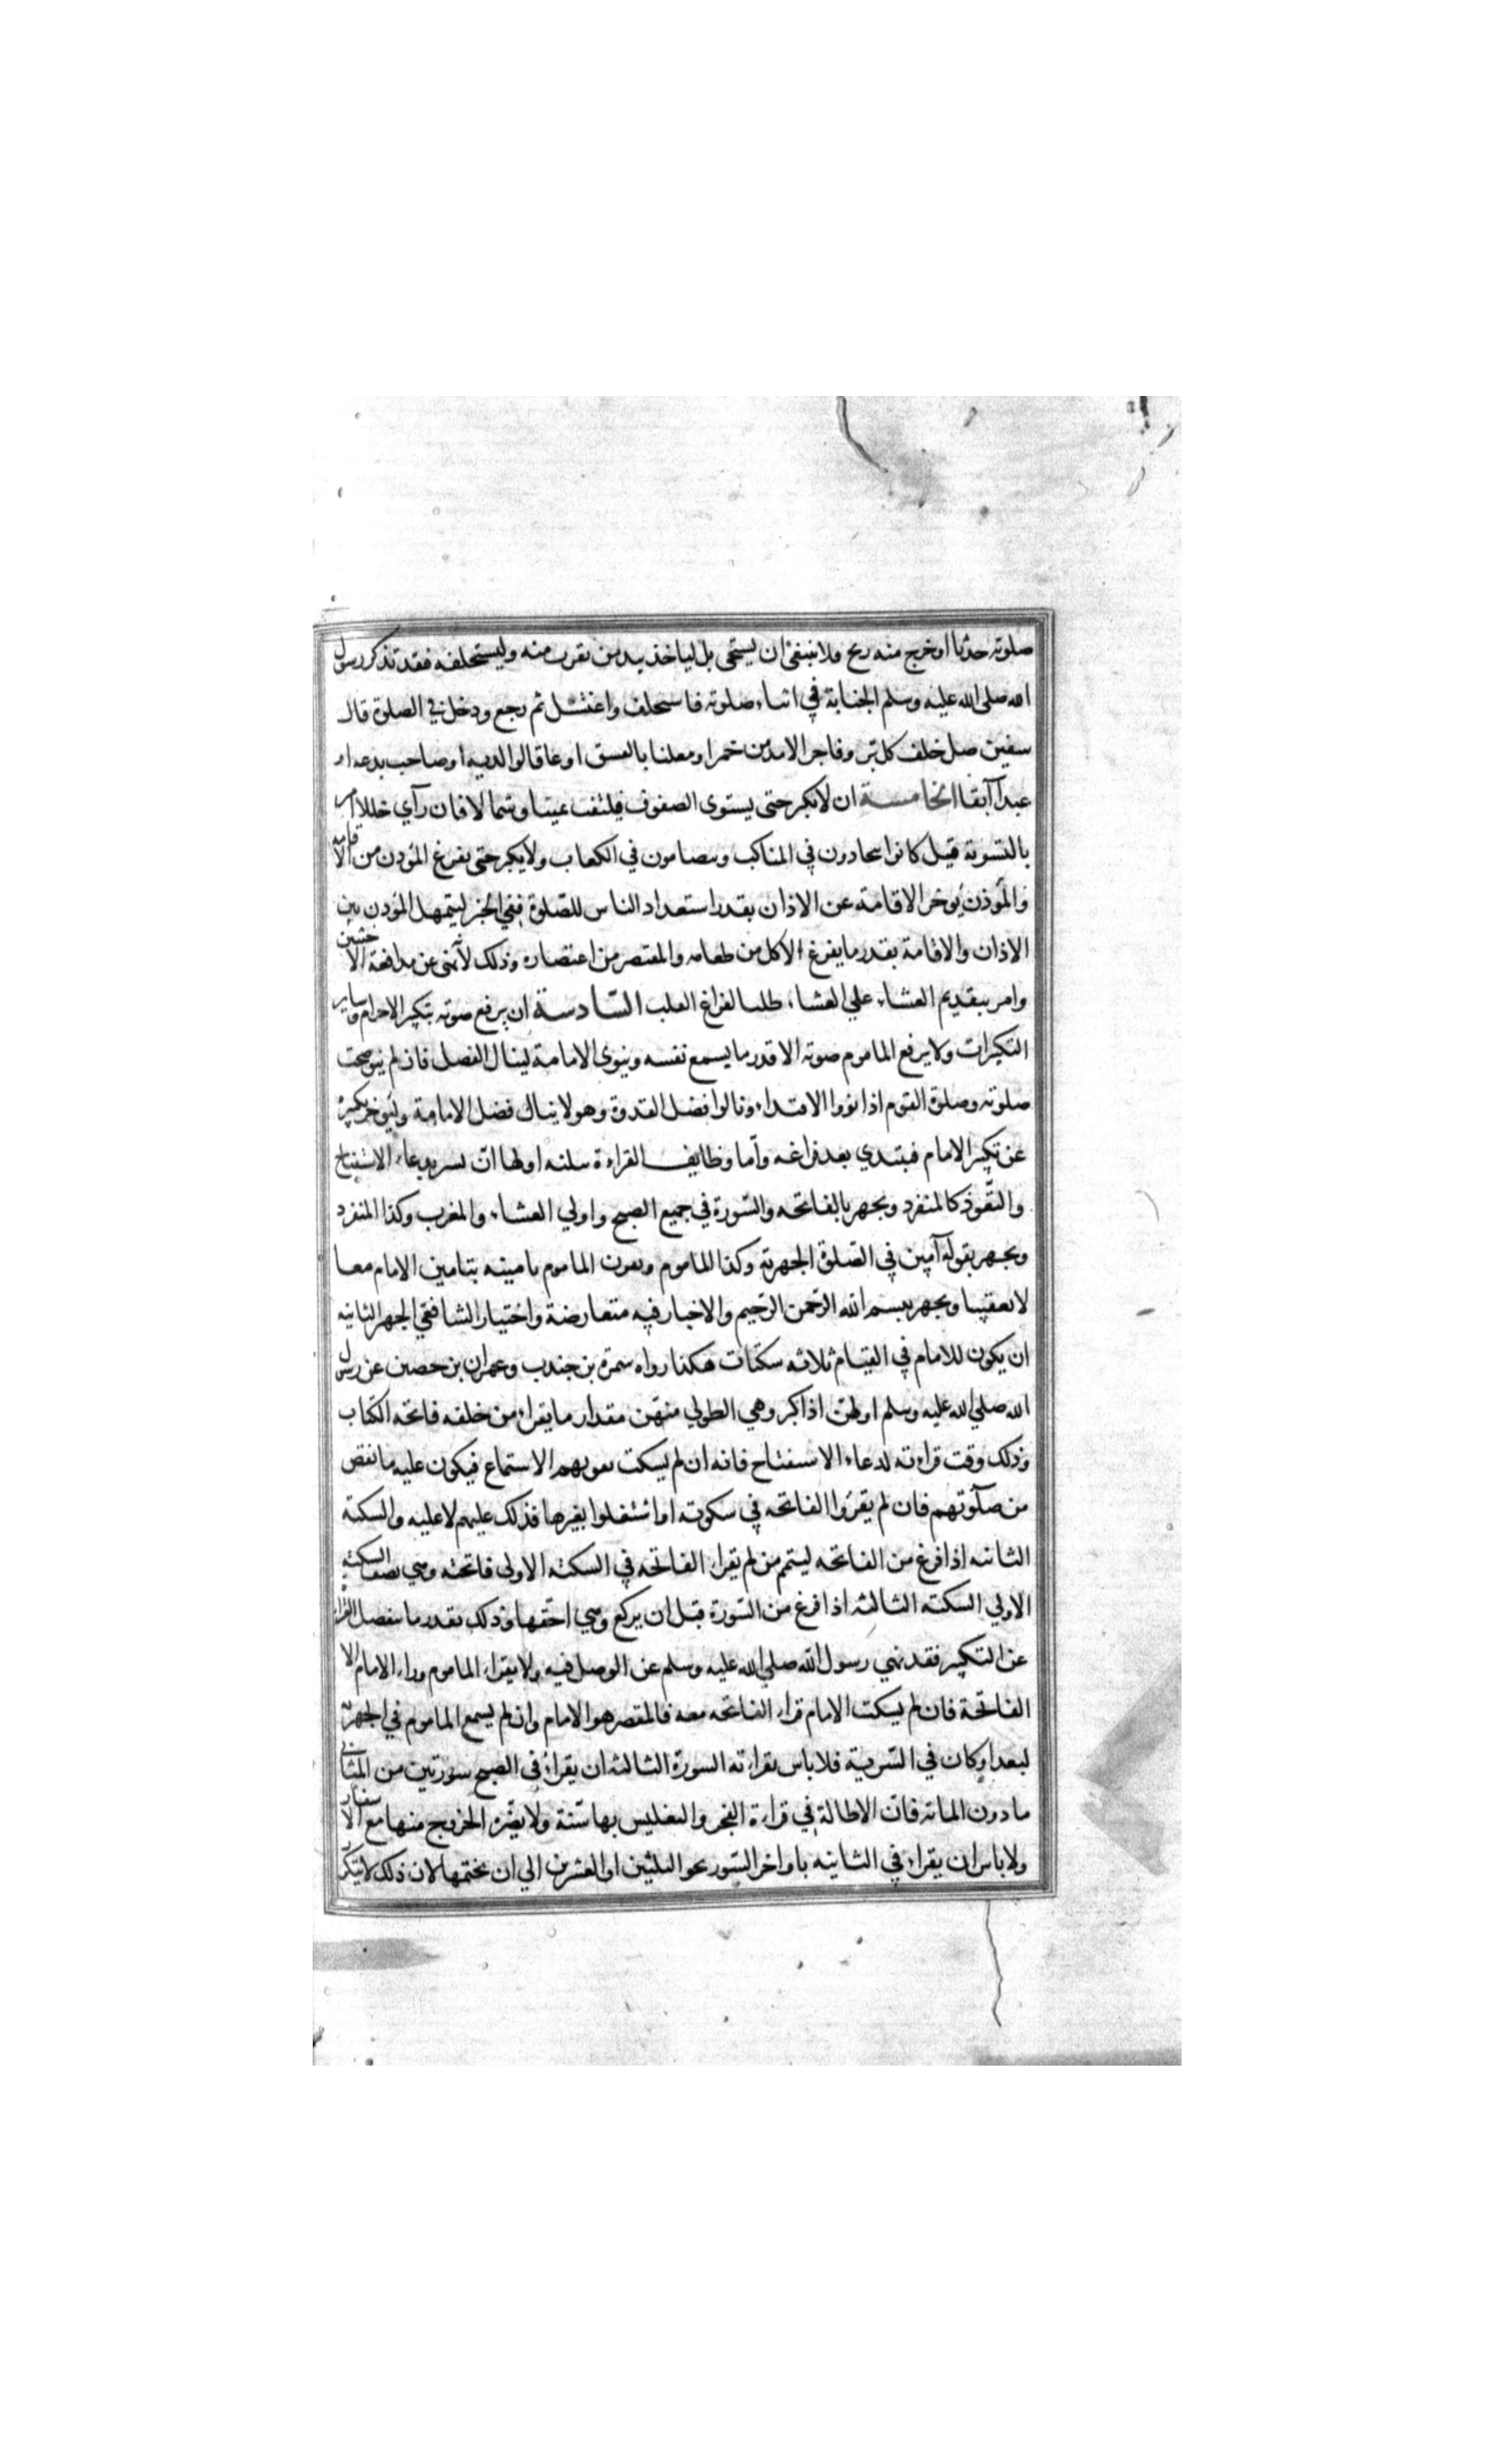 صلوته حدثا او خرج منه ريح ولا ينبغى ان يستحى بل لياخذ بيد من تقرب منه وليستخلفه فقد تذكر رسول
الله صلى الله عليه وسلم الجنابة في اثناء صلوته فاستخلف واغتسل ثم رجع ودخل في الصلوة قال
سفين صل خلف كل بر وفاجر الا مدمن خمر او معلنا بالفسق او عاقا لوالديه او صاحب بدعه او
عبدا آبقا الخامسة ان لا يكبر حتى يستوى الصفوف فليلتفت يمينا وشمالا فان رآي خللا امر
بالتسوية قيل كانوا يتحادون في المناكب ويتضامون في الكعاب ولا يكبر حتى يفرغ المؤذن من الاقامه
والمؤذن يوخر الاقامة عن الاذان بقدر استعداد الناس للصلوة ففي الخبر ليتمهل المؤذن بين
الاذان والاقامة بقدر ما يفرغ الاكل من طعامه والمعتصر من اعتصاره وذلك لانه نهى عن مدافعة الاخبثين
وامر بتقديم العشاء علي العشاء طلبا لفراغ القلب السادسة ان يرفع صوته بتكبير الاحرام وساير
التكبيرات ولا يرفع الماموم صوته الا قدر ما يسمع نفسه وينوى الامامة لينال الفضل فان لم ينو صحت
صلوته وصلوة القوم اذا نووا الاقتداء ونالوا فضل القدوة وهو لا ينال فضل الامامة وليوخر تكبيره
عن تكبير الامام فيبتدي بعد فراغه وأما وظايف القراءة ثلثه اولها ان يسر بدعاء الاستفتاح
والتعوذ كالمنفرد ويجهر بالفاتحه والسورة في جميع الصبح واولي العشاء والمغرب وكذا المنفرد
ويجهر بقوله آمين في الصلوة الجهرية وكذا الماموم ويقرن الماموم تامينه بتامين الامام معا
لا تعقيبا ويجهر ببسم الله الرحمن الرحيم والاخبار فيه متعارضة واختيار الشافعي الجهر الثانيه
ان يكون للامام في القيام ثلاثه سكتات هكذا رواه سمرة بن جندب وعمران بن حصين عن رسول
الله صلي الله عليه وسلم اولهن اذا كبر وهي الطولي منهن مقدار ما يقراء من خلفه فاتحه الكتاب
وذلك وقت قراءته لدعاء الاستفتاح فانه ان لم يسكت يفوتهم الاستماع فيكون عليه ما نقص
من صلوتهم فان لم يقرؤا الفاتحه في سكوته او اشتغلوا بغيرها فذلك عليهم لا عليه والسكتة
الثانيه اذا فرغ من الفاتحه ليتم من لم يقراء الفاتحه في السكته الاولى فاتحته وهي نصف السكته
الاولي السكته الثالثه اذا فرغ من السورة قبل ان يركع وهي اخفها وذلك بقدر ما تنفصل القراة
عن التكبير فقد نهي رسول الله صلي الله عليه وسلم عن الوصل فيه ولا يقراء الماموم وراء الامام الا
الفاتحة فان لم يسكت الامام قراء الفاتحه معه فالمقصر هو الامام وان لم يسمع الماموم في الجهرية
لبعد او كان في السرية فلا باس بقراءته السورة الثالثه ان يقراء في الصبح سورتين من المثاني
ما دون المائه فان الاطالة في قراءة الفجر والتغليس بها سنة ولا يضره الخروج منها مع الاسفار
ولا باس ان يقراء في الثانيه باواخر السور نحو الثلثين او العشرين الي ان يختمها لان ذلك لا يتكرر